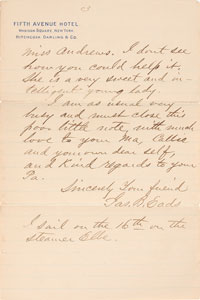 FIFTH AVENUE HOTEL
MADISON SQUARE, NEW YORK.
HITCHCOCK, DARLING & CO.
Miss Andrews. I dont see
how you could help it.
She is a very sweet and in-
telligent young lady.
I am as usual very
busy and must close this
poor little note, with much
love to your Ma, Callie
and your own dear self,
and kind regards to your
Pa.
Sincerely Your friend
Jas. B. Eads
I sail on the 16th on the
steamer Elbe.